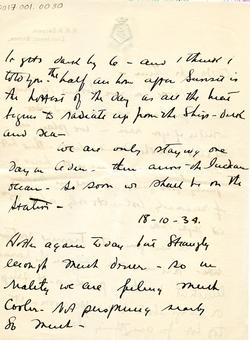 0017.001.0030
It gets dark by 6 - and I think I
told you. The half an hour after Sunset is
the hottest of the day as all the heat
begins to radiate up from the Ship - deck
and sea -
we are only staying one
day in Aden - then across the Indian
ocean - So soon we shall be on the
Station -
18-10-34.
Hotter again today - but Strangly
enough much drier - so in
reality we are feeling much
Cooler - Not perspiring nearly
So much -